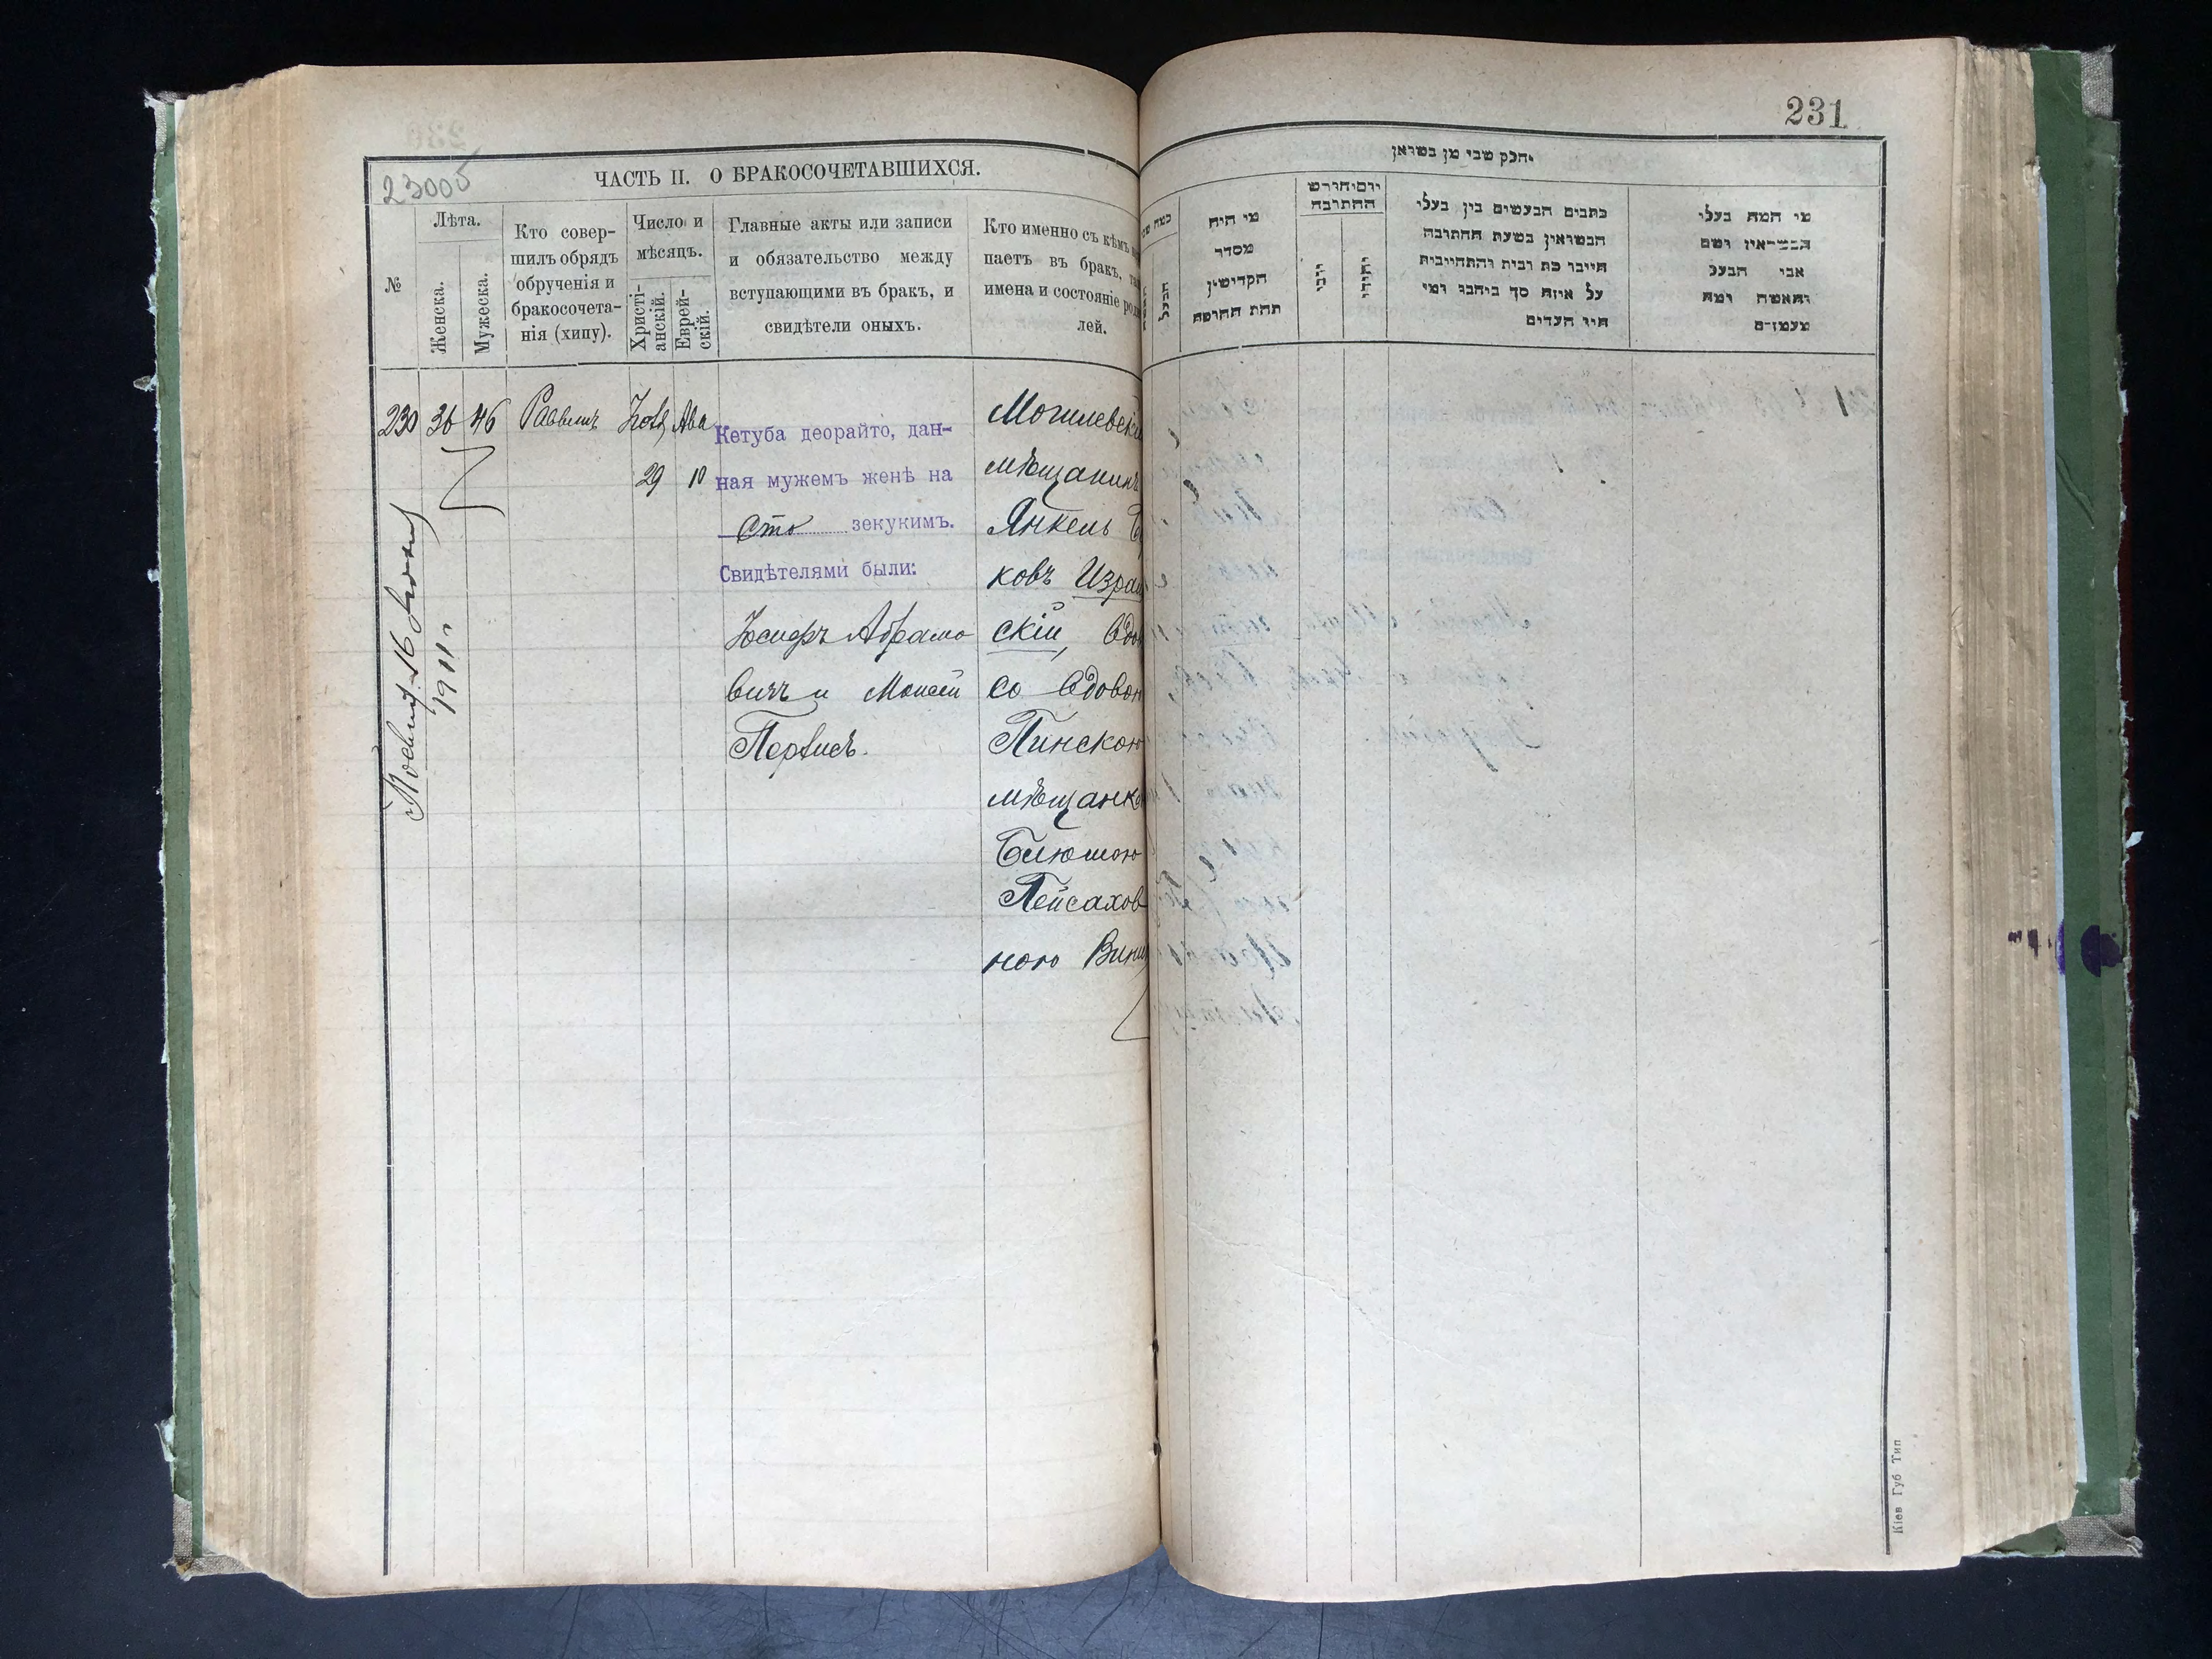 231
23005
ЧАСТЬ II. О БРАКОСОЧЕТАВШИХСЯ.
№
Лѣта.
Женска.
Мужеска.
Кто совер-
шилъ обрядъ
обрученія и
бракосочета-
нія (хипу).
Число и
мѣсяцъ.
Христі-
анскій.
Еврей-
скій.
Главные акты или записи
и обязательство между
вступающими въ бракъ, и
свидѣтели оныхъ.
Кто именно съ кѣмъ
паетъ въ бракъ,
имена и состояніе
лей.
230 36 46 Раввинъ Ава
29 10
Кетуба деорайто, дан-
ная мужемъ женѣ на
Сто зекукимъ.
Свидѣтелями были:
Іосифъ Абрамо
вичъ и
1911 г
Могилевскі
мѣщанинъ
Янкель
ковъ Изра
скій, вдо
со вдово
Пинскою
мѣщанко
Блюмою
Пейсахов
ною
וחלק שני מן נשואין
מי היה
מסדר
הקדישין
תחת החופה
יום וחודש
החתונה
יוני
יהודי
כתבים הנעשים בין בעלי
הנשואין בשעת החתונה
היינו כת רבית והתחייבות
על איזה סך ביניהם ומי
היו העדים
מי המה בעלי
הנשואין ושם
אבי הבעל
והאשה ומה
מעמדם
הבעל
Кіев Губ Тип